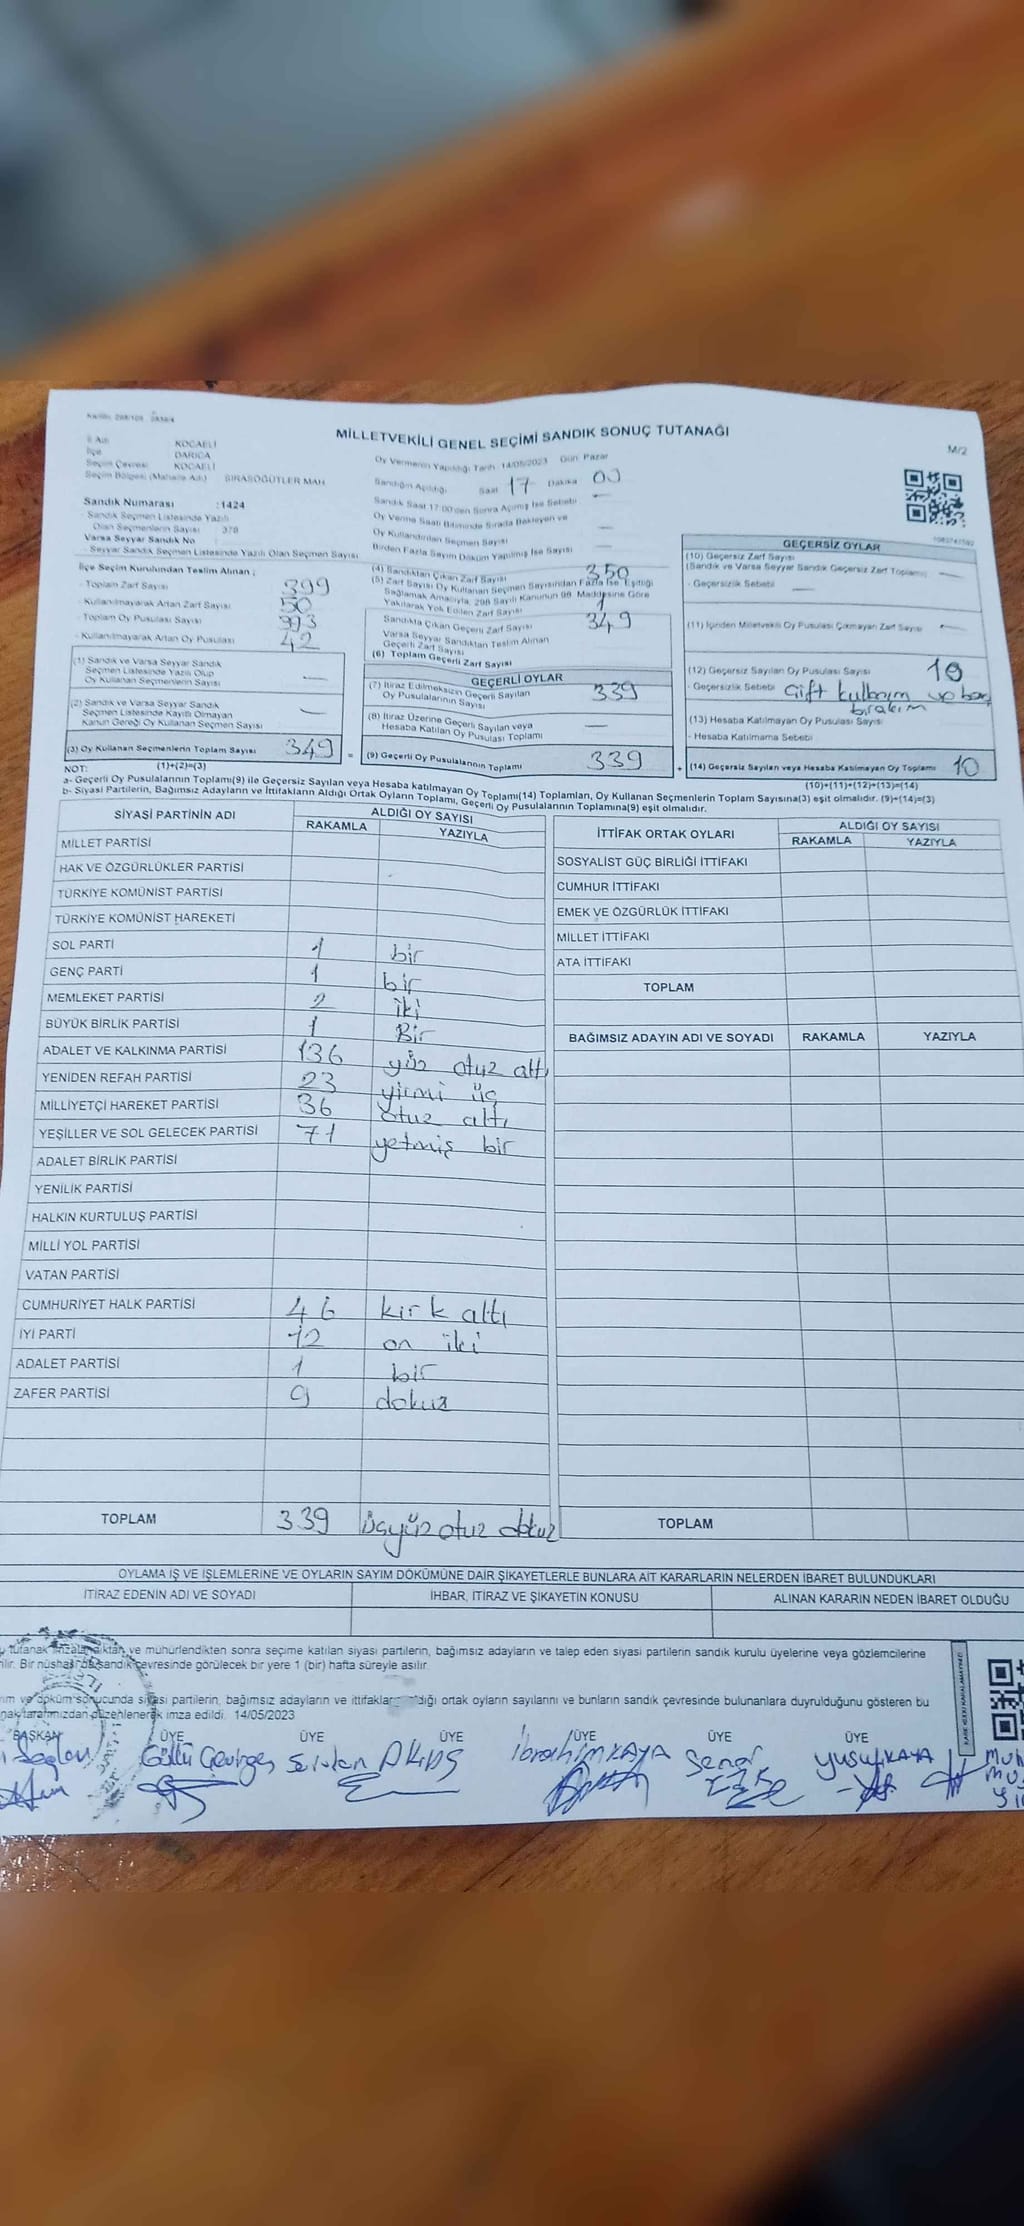 MİLLETVEKİLİ GENEL SEÇİMİ SANDIK SONUÇ TUTANAĞI
M/2
İl Adı KOCAELİ
İlçe DARICA
Seçim Çevresi KOCAELİ
Seçim Bölgesi (Mahalle Adı) SIRASÖĞÜTLER MAH
Sandık Numarası :1424
Sandık Seçmen Listesinde Yazılı
Olan Seçmenlerin Sayısı : 378
Varsa Seyyar Sandık No
Seyyar Sandık Listesinde Yazılı Olan Seçmen Sayısı
Oy Vermenin Yapıldığı Tarih 14/05/2023 Gün Pazar
Sandığın Açıldığı Saat 17 Dakika
Sandık Saat 17:00'den Sonra Açılmış İse Sebebi —
Oy Verme Saati Bitiminde Sırada Bekleyen ve
Oy Kullandırılan Seçmen Sayısı —
Birden Fazla Sayım Döküm Yapılmış İse Sayısı —
İlçe Seçim Kurulundan Teslim Alınan ;
- Toplam Zarf Sayısı 399
- Kullanılmayarak Artan Zarf Sayısı 50
- Toplam Oy Pusulası Sayısı
- Kullanılmayarak Artan Oy Pusulası 42
(1) Sandık ve Varsa Seyyar Sandık
Seçmen Listesinde Yazılı Olup
Oy Kullanan Seçmenlerin Sayısı —
(2) Sandık ve Varsa Seyyar Sandık
Seçmen Listesinde Kayıtlı Olmayan
Kanun Gereği Oy Kullanan Seçmen Sayısı —
(3) Oy Kullanan Seçmenlerin Toplam Sayısı 349
(4) Sandıktan Çıkan Zarf Sayısı 350
(5) Zarf Sayısı Oy Kullanan Seçmen Sayısından Fazla İse, Eşitliği
Sağlamak Amacıyla, 298 Sayılı Kanunun 98. Maddesine Göre
Yakılarak Yok Edilen Zarf Sayısı 1
Sandıkta Çıkan Geçerli Zarf Sayısı 349
Varsa Seyyar Sandıktan Teslim Alınan
Geçerli Zarf Sayısı
(6) Toplam Geçerli Zarf Sayısı
GEÇERLİ OYLAR
(7) İtiraz Edilmeksizin Geçerli Sayılan
Oy Pusulalarının Sayısı 339
(8) İtiraz Üzerine Geçerli Sayılan veya
Hesaba Katılan Oy Pusulası Toplamı —
= (9) Geçerli Oy Pusulalarının Toplamı 339
GEÇERSİZ OYLAR
(10) Geçersiz Zarf Sayısı
(Sandık ve Varsa Seyyar Sandık Geçersiz Zarf Toplamı) —
- Geçersizlik Sebebi —
(11) İçinden Milletvekili Oy Pusulası Çıkmayan Zarf Sayısı —
(12) Geçersiz Sayılan Oy Pusulası Sayısı 10
- Geçersizlik Sebebi
(13) Hesaba Katılmayan Oy Pusulası Sayısı
- Hesaba Katılmama Sebebi
+ (14) Geçersiz Sayılan veya Hesaba Katılmayan Oy Toplamı 10
NOT: (1)+(2)=(3)
(10)+(11)+(12)+(13)=(14)
a- Geçerli Oy Pusulalarının Toplamı(9) ile Geçersiz Sayılan veya Hesaba katılmayan Oy Toplamı(14) Toplamları, Oy Kullanan Seçmenlerin Toplam Sayısına(3) eşit olmalıdır. (9)+(14)=(3)
b- Siyasi Partilerin, Bağımsız Adayların ve İttifakların Aldığı Oyların Toplamı, Geçerli Oy Pusulalarının Toplamına(9) eşit olmalıdır.
SİYASİ PARTİNİN ADI ALDIĞI OY SAYISI
RAKAMLA YAZIYLA
MİLLET PARTİSİ
HAK VE ÖZGÜRLÜKLER PARTİSİ
TÜRKİYE KOMÜNİST PARTİSİ
TÜRKİYE KOMÜNİST HAREKETİ
SOL PARTİ 1 bir
GENÇ PARTİ 1 bir
MEMLEKET PARTİSİ 2 iki
BÜYÜK BİRLİK PARTİSİ 1 Bir
ADALET VE KALKINMA PARTİSİ 136 yüz otuz altı
YENİDEN REFAH PARTİSİ 23 yirmi üç
MİLLİYETÇİ HAREKET PARTİSİ 36 otuz altı
YEŞİLLER VE SOL GELECEK PARTİSİ 71 yetmiş bir
ADALET BİRLİK PARTİSİ
YENİLİK PARTİSİ
HALKIN KURTULUŞ PARTİSİ
MİLLİ YOL PARTİSİ
VATAN PARTİSİ
CUMHURİYET HALK PARTİSİ 46 kırk altı
İYİ PARTİ 12 on iki
ADALET PARTİSİ 1 bir
ZAFER PARTİSİ 9 dokuz
TOPLAM 339 üçyüz otuz dokuz
İTTİFAK ORTAK OYLARI ALDIĞI OY SAYISI
RAKAMLA YAZIYLA
SOSYALİST GÜÇ BİRLİĞİ İTTİFAKI
CUMHUR İTTİFAKI
EMEK VE ÖZGÜRLÜK İTTİFAKI
MİLLET İTTİFAKI
ATA İTTİFAKI
TOPLAM
BAĞIMSIZ ADAYIN ADI VE SOYADI RAKAMLA YAZIYLA
TOPLAM
OYLAMA İŞ VE İŞLEMLERİNE VE OYLARIN SAYIM DÖKÜMÜNE DAİR ŞİKAYETLERLE BUNLARA AİT KARARLARIN NELERDEN İBARET BULUNDUKLARI
İTİRAZ EDENİN ADI VE SOYADI İHBAR, İTİRAZ VE ŞİKAYETİN KONUSU ALINAN KARARIN NEDEN İBARET OLDUĞU
tutanak imzalandıktan ve mühürlendikten sonra seçime katılan siyasi partilerin, bağımsız adayların ve talep eden siyasi partilerin sandık kurulu üyelerine veya gözlemcilerine
ilir. Bir nüshası da sandık çevresinde görülecek bir yere 1 (bir) hafta süreyle asılır.
ım ve döküm sonucunda siyasi partilerin, bağımsız adayların ve ittifakların aldığı ortak oyların sayılarını ve bunların sandık çevresinde bulunanlara duyrulduğunu gösteren bu
nak tarafımızdan düzenlenerek imza edildi. 14/05/2023
BAŞKAN ÜYE ÜYE ÜYE ÜYE ÜYE
İbrahim KAYA YUSUF KAYA